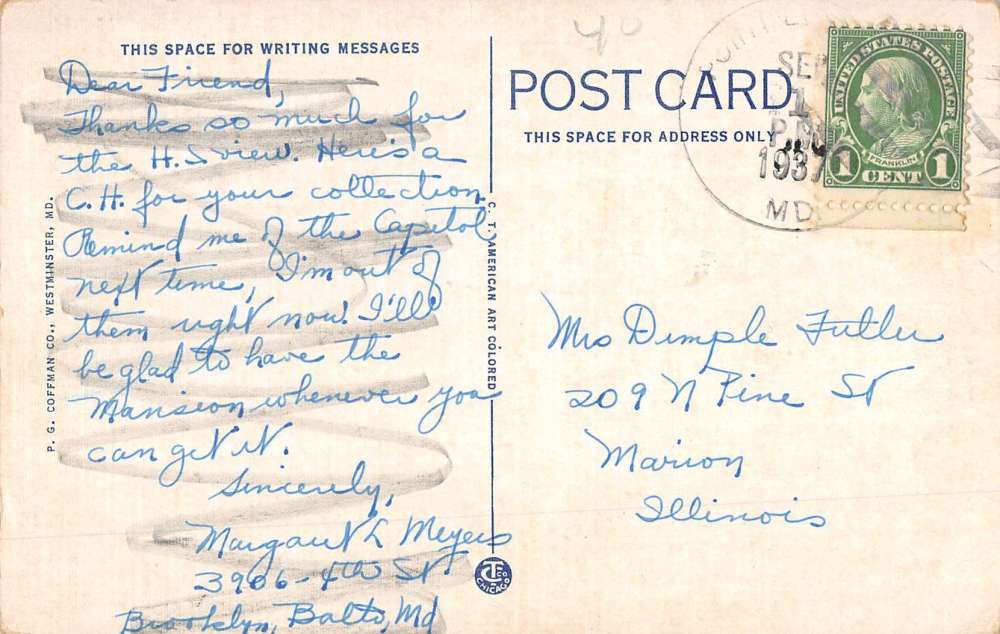 THIS SPACE FOR WRITING MESSAGES
Dear Friend,
Thanks so much for
the H.S view. Here's a
C.H. for your collection.
Remind me of the Capitol
next time, I'm out of
them right now! I'll
be glad to have the
Mansion whenever you
can get it.
Sincerely,
Margaret L Meyers
3906-4th St
Brooklyn, Balto, Md
P. G. COFFMAN CO., WESTMINSTER, MD.
C. T. AMERICAN ART COLORED
CT CO
CHICAGO
POST CARD
THIS SPACE FOR ADDRESS ONLY
40
SEP
1
P.M.
1937
MD
UNITED STATES POSTAGE
FRANKLIN
1 CENT 1
Mrs Dimple Fuller
209 N Pine St
Marion
Illinois